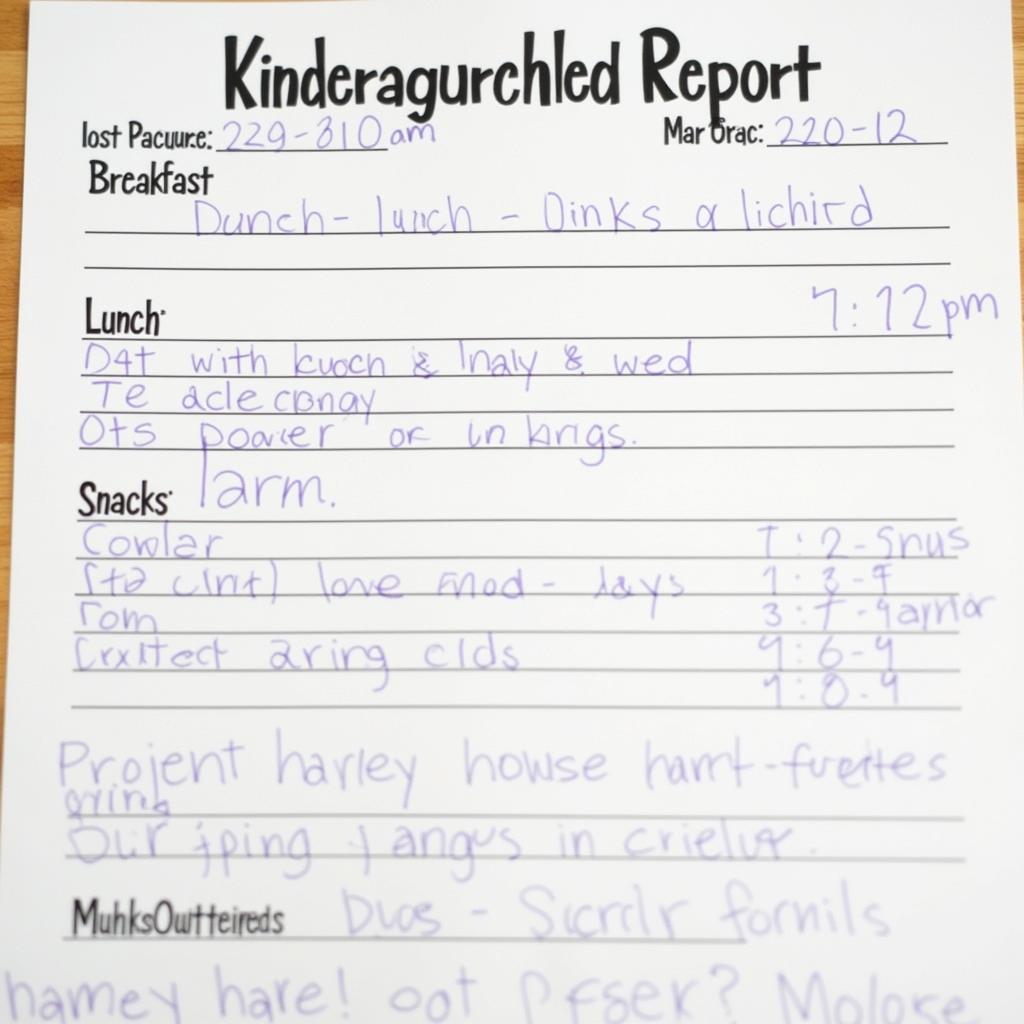 Kinderagurchled Report
lost Pacuure: 229-310am Mar Grac: 220-12
Breakfast
Dunch- lunch - Oinks a lichird
Lunch 7:12pm
D4t with kuocn & Inaly & wed
Te acle conay
Ots poower or in brigs.
Snacks larm.
Cowlar T:2-Snus
love mod - days 1:3-9
Tom 3:T-
aring clds 9:6-9
9:0-9
Projent harley howse hamt-fvertes
aring
Our jping angus in crielur.
MuhksOutteireds Duos - Scrrlr fornils
hamey hare! oot Pfser? Molose